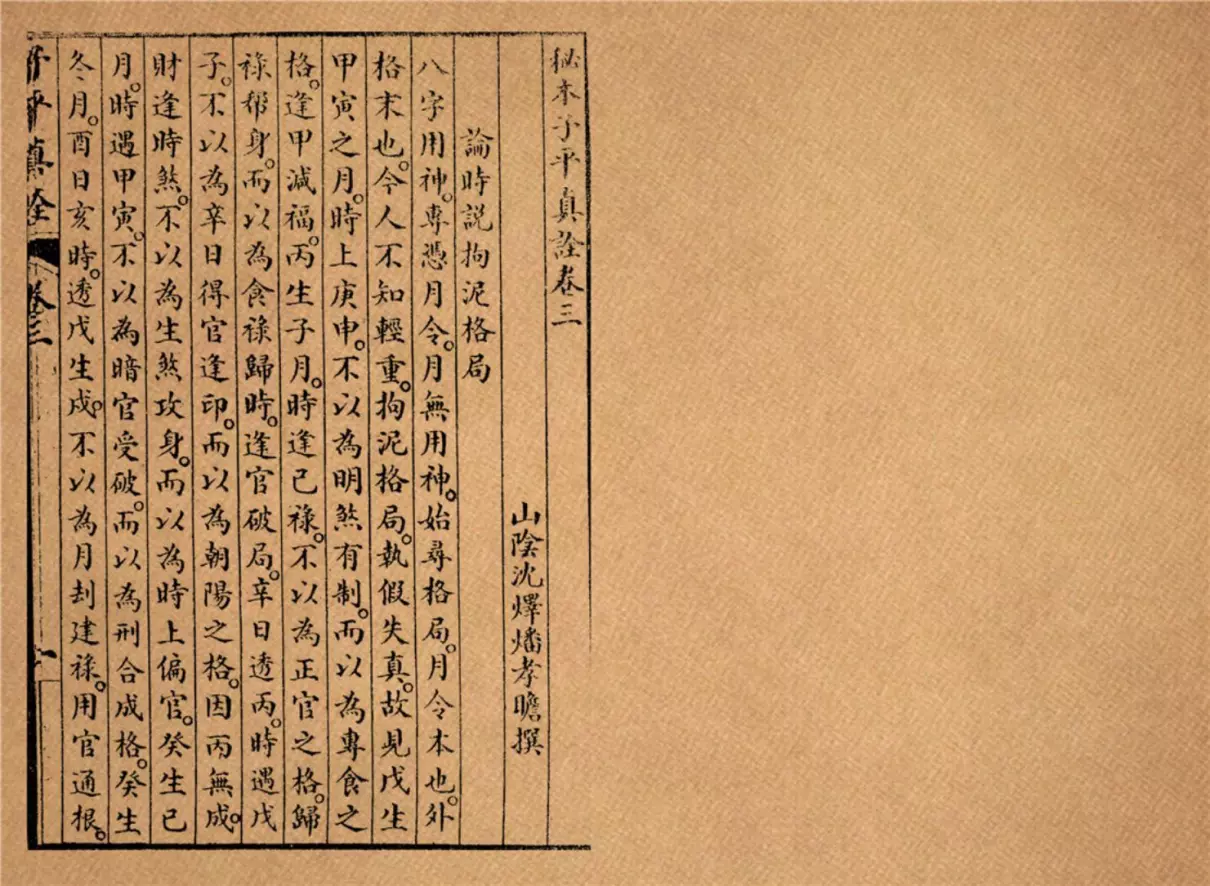 秘本子平真詮卷三
山陰沈燡燔孝瞻撰
論時說拘泥格局
八字用神。專憑月令。月無用神。始尋格局。月令本也。外
格末也。今人不知輕重。拘泥格局。執假失真。故見戊生
甲寅之月。時上庚申。不以為明煞有制。而以為專食之
格。逢甲減福。丙生子月。時逢己祿。不以為正官之格。歸
祿幫身。而以為食祿歸時。逢官破局。辛日透丙。時遇戊
子。不以為辛日得官逢印。而以為朝陽之格。因丙無成。
財逢時煞。不以為生煞攻身。而以為時上偏官。癸生巳
月。時遇甲寅。不以為暗官受破。而以為刑合成格。癸生
冬月。酉日亥時。透戊生戍。不以為月刦建祿。用官通根。
子平真詮 卷三 一